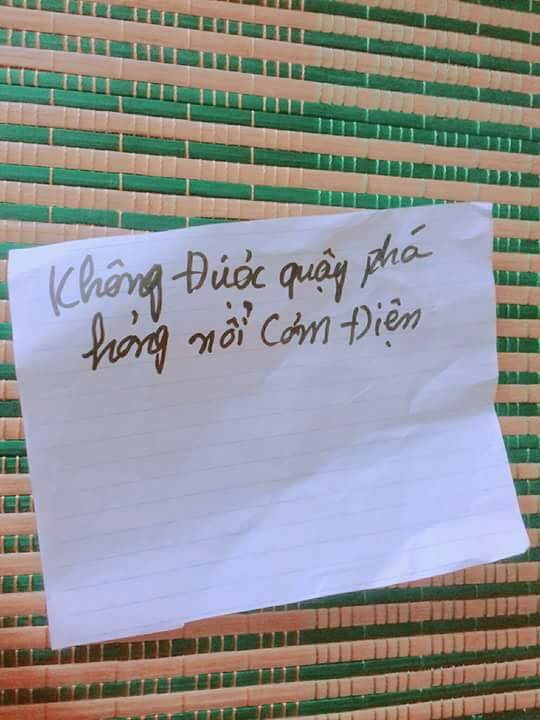 Không Được quậy phá
hỏng nồi Cơm Điện